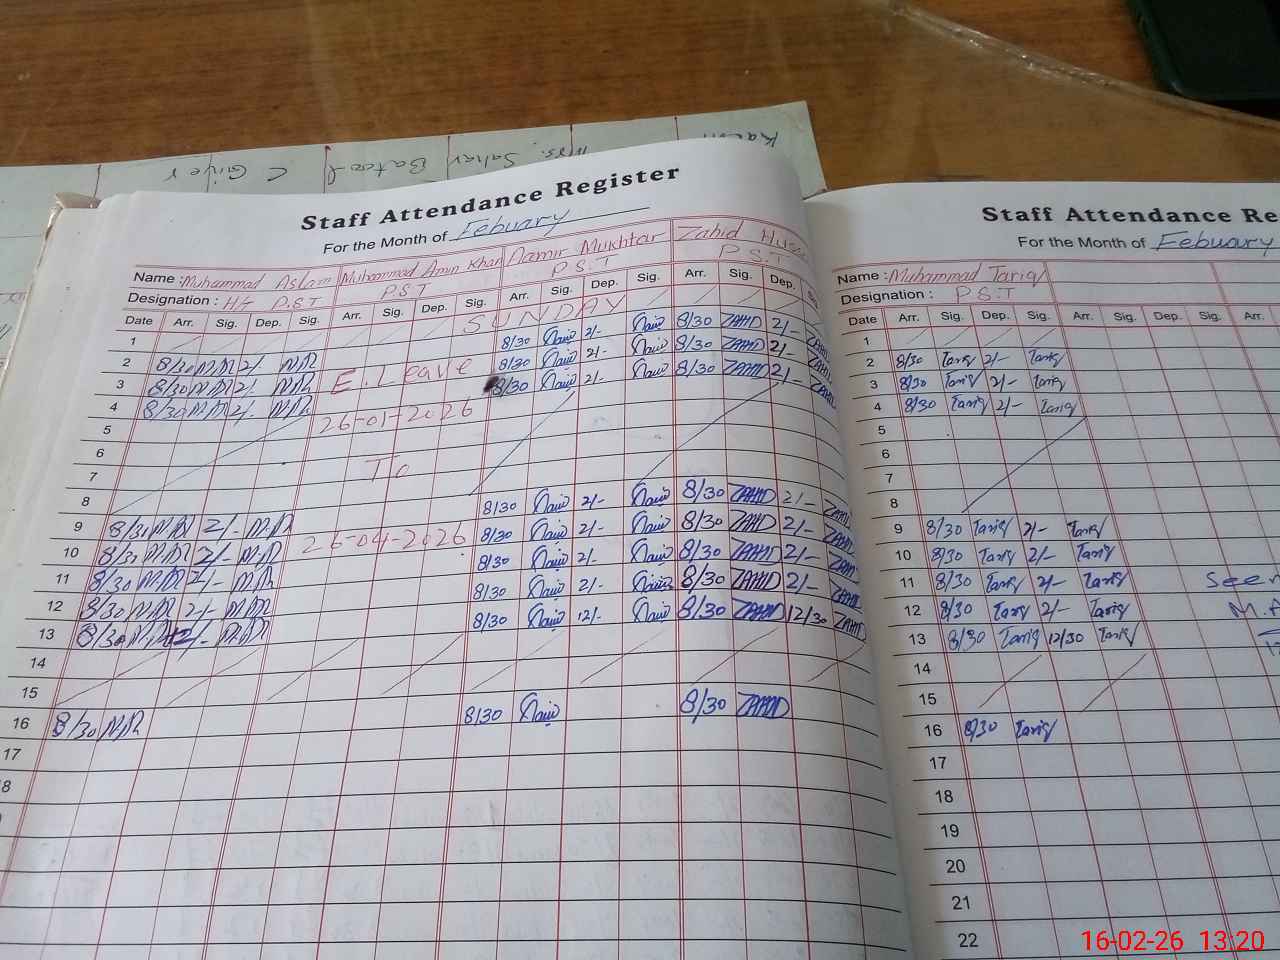 Kaen
Mrs. Sahar Batool C Giver
Staff Attendance Register
For the Month of Febuary
Name : Muhammad Aslam Muhammad Amin Khan Aamir Mukhtar Zahid Huss
Designation : H/T P.S.T P.S.T P.S.T P.S.T
Date Arr. Sig. Dep. Sig. Arr. Sig. Dep. Sig. Arr. Sig. Dep. Sig. Arr. Sig. Dep. Sig.
1 SUNDAY
2 8/30 MA 2/- MA 8/30 2/- 8/30 ZAHID 2/- ZAHID
3 8/30 MA 2/- MA E. Leave 8/30 2/- 8/30 ZAHID 2/- ZAHID
4 8/30 MA 2/- MA 26-01-2026 8/30 2/- 8/30 ZAHID 2/- ZAHID
5
6 To
7
8
9 8/30 MA 2/- MA 26-04-2026 8/30 2/- 8/30 ZAHID 2/- ZAHID
10 8/30 MA 2/- MA 8/30 2/- 8/30 ZAHID 2/- ZAHID
11 8/30 MA 2/- MA 8/30 2/- 8/30 ZAHID 2/- ZAHID
12 8/30 MA 2/- MA 8/30 2/- 8/30 ZAHID 2/- ZAHID
13 8/30 MA 2/- MA 8/30 12/- 8/30 ZAHID 12/30 ZAHID
14
15
16 8/30 MA 8/30 8/30 ZAHID
17
8
Staff Attendance Re
For the Month of Febuary
Name : Muhammad Tariq
Designation : P.S.T
Date Arr. Sig. Dep. Sig. Arr. Sig. Dep. Sig. Arr.
1
2 8/30 Tariq 2/- Tariq
3 8/30 Tariq 2/- Tariq
4 8/30 Tariq 2/- Tariq
5
6
7
8
9 8/30 Tariq 2/- Tariq
10 8/30 Tariq 2/- Tariq
11 8/30 Tariq 2/- Tariq Seen
12 8/30 Tariq 2/- Tariq M.A
13 8/30 Tariq 12/30 Tariq
14
15
16 8/30 Tariq
17
18
19
20
21
22
16-02-26 13:20